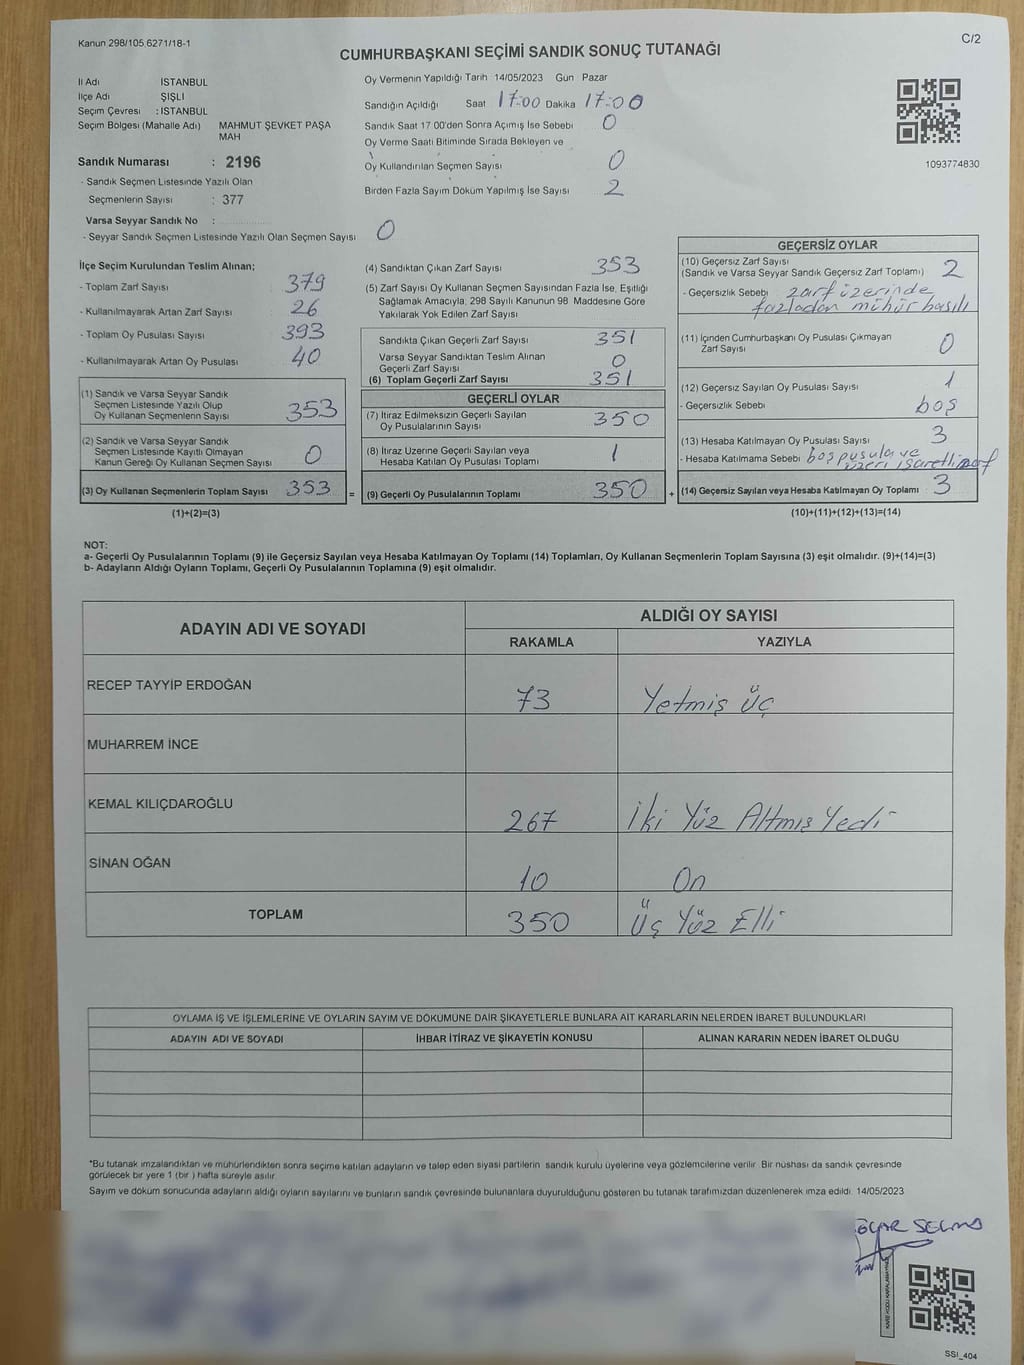 Kanun 298/105,6271/18-1
C/2
CUMHURBAŞKANI SEÇİMİ SANDIK SONUÇ TUTANAĞI
İl Adı İSTANBUL
İlçe Adı ŞİŞLİ
Seçim Çevresi : İSTANBUL
Seçim Bölgesi (Mahalle Adı) MAHMUT ŞEVKET PAŞA
MAH
Sandık Numarası : 2196
- Sandık Seçmen Listesinde Yazılı Olan
Seçmenlerin Sayısı : 377
Varsa Seyyar Sandık No :
- Seyyar Sandık Seçmen Listesinde Yazılı Olan Seçmen Sayısı 0
Oy Vermenin Yapıldığı Tarih 14/05/2023 Gün Pazar
Sandığın Açıldığı Saat 17:00 Dakika 17:00
Sandık Saat 17 00'den Sonra Açımış İse Sebebi 0
Oy Verme Saati Bitiminde Sırada Bekleyen ve
Oy Kullandırılan Seçmen Sayısı 0
Birden Fazla Sayım Döküm Yapılmış İse Sayısı 2
1093774830
İlçe Seçim Kurulundan Teslim Alınan;
- Toplam Zarf Sayısı 379
- Kullanılmayarak Artan Zarf Sayısı 26
- Toplam Oy Pusulası Sayısı 393
- Kullanılmayarak Artan Oy Pusulası 40
(1) Sandık ve Varsa Seyyar Sandık
Seçmen Listesinde Yazılı Olup
Oy Kullanan Seçmenlerin Sayısı 353
(2) Sandık ve Varsa Seyyar Sandık
Seçmen Listesinde Kayıtlı Olmayan
Kanun Gereği Oy Kullanan Seçmen Sayısı 0
(3) Oy Kullanan Seçmenlerin Toplam Sayısı 353 =
(1)+(2)=(3)
(4) Sandıktan Çıkan Zarf Sayısı 353
(5) Zarf Sayısı Oy Kullanan Seçmen Sayısından Fazla İse, Eşitliği
Sağlamak Amacıyla; 298 Sayılı Kanunun 98. Maddesine Göre
Yakılarak Yok Edilen Zarf Sayısı
Sandıkta Çıkan Geçerli Zarf Sayısı 351
Varsa Seyyar Sandıktan Teslim Alınan
Geçerli Zarf Sayısı 0
(6) Toplam Geçerli Zarf Sayısı 351
GEÇERLİ OYLAR
(7) İtiraz Edilmeksizin Geçerli Sayılan
Oy Pusulalarının Sayısı 350
(8) İtiraz Üzerine Geçerli Sayılan veya
Hesaba Katılan Oy Pusulası Toplamı 1
(9) Geçerli Oy Pusulalarının Toplamı 350 +
GEÇERSİZ OYLAR
(10) Geçersiz Zarf Sayısı
(Sandık ve Varsa Seyyar Sandık Geçersiz Zarf Toplamı) 2
- Geçersizlik Sebebi zarf üzerinde
fazladan mühür basılı
(11) İçinden Cumhurbaşkanı Oy Pusulası Çıkmayan
Zarf Sayısı 0
(12) Geçersiz Sayılan Oy Pusulası Sayısı 1
- Geçersizlik Sebebi boş
(13) Hesaba Katılmayan Oy Pusulası Sayısı 3
- Hesaba Katılmama Sebebi boş pusula ve
üzeri işaretli zarf
(14) Geçersiz Sayılan veya Hesaba Katılmayan Oy Toplamı 3
(10)+(11)+(12)+(13)=(14)
NOT:
a- Geçerli Oy Pusulalarının Toplamı (9) ile Geçersiz Sayılan veya Hesaba Katılmayan Oy Toplamı (14) Toplamları, Oy Kullanan Seçmenlerin Toplam Sayısına (3) eşit olmalıdır. (9)+(14)=(3)
b- Adayların Aldığı Oyların Toplamı, Geçerli Oy Pusulalarının Toplamına (9) eşit olmalıdır.
ADAYIN ADI VE SOYADI ALDIĞI OY SAYISI
RAKAMLA YAZIYLA
RECEP TAYYİP ERDOĞAN 73 Yetmiş üç
MUHARREM İNCE
KEMAL KILIÇDAROĞLU 267 İki Yüz Altmış Yedi
SİNAN OĞAN 10 On
TOPLAM 350 Üç Yüz Elli
OYLAMA İŞ VE İŞLEMLERİNE VE OYLARIN SAYIM VE DÖKÜMÜNE DAİR ŞİKAYETLERLE BUNLARA AİT KARARLARIN NELERDEN İBARET BULUNDUKLARI
ADAYIN ADI VE SOYADI İHBAR İTİRAZ VE ŞİKAYETİN KONUSU ALINAN KARARIN NEDEN İBARET OLDUĞU
*Bu tutanak imzalandıktan ve mühürlendikten sonra seçime katılan adayların ve talep eden siyasi partilerin sandık kurulu üyelerine veya gözlemcilerine verilir. Bir nüshası da sandık çevresinde
görülecek bir yere 1 (bir ) hafta süreyle asılır.
Sayım ve döküm sonucunda adayların aldığı oyların sayılarını ve bunların sandık çevresinde bulunanlara duyurulduğunu gösteren bu tutanak tarafımızdan düzenlenerek imza edildi. 14/05/2023
SSI_404